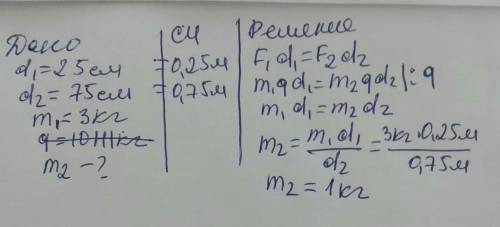 Дано
d₁=25см
d₂=75см
m₁=3кг
g=10Н/кг
m₂-?
СИ
=0,25м
=0,75м
Решение
F₁d₁=F₂d₂
m₁gd₁=m₂gd₂|:g
m₁d₁=m₂d₂
m₂=m₁d₁/d₂=3кг·0,25м/0,75м
m₂=1кг